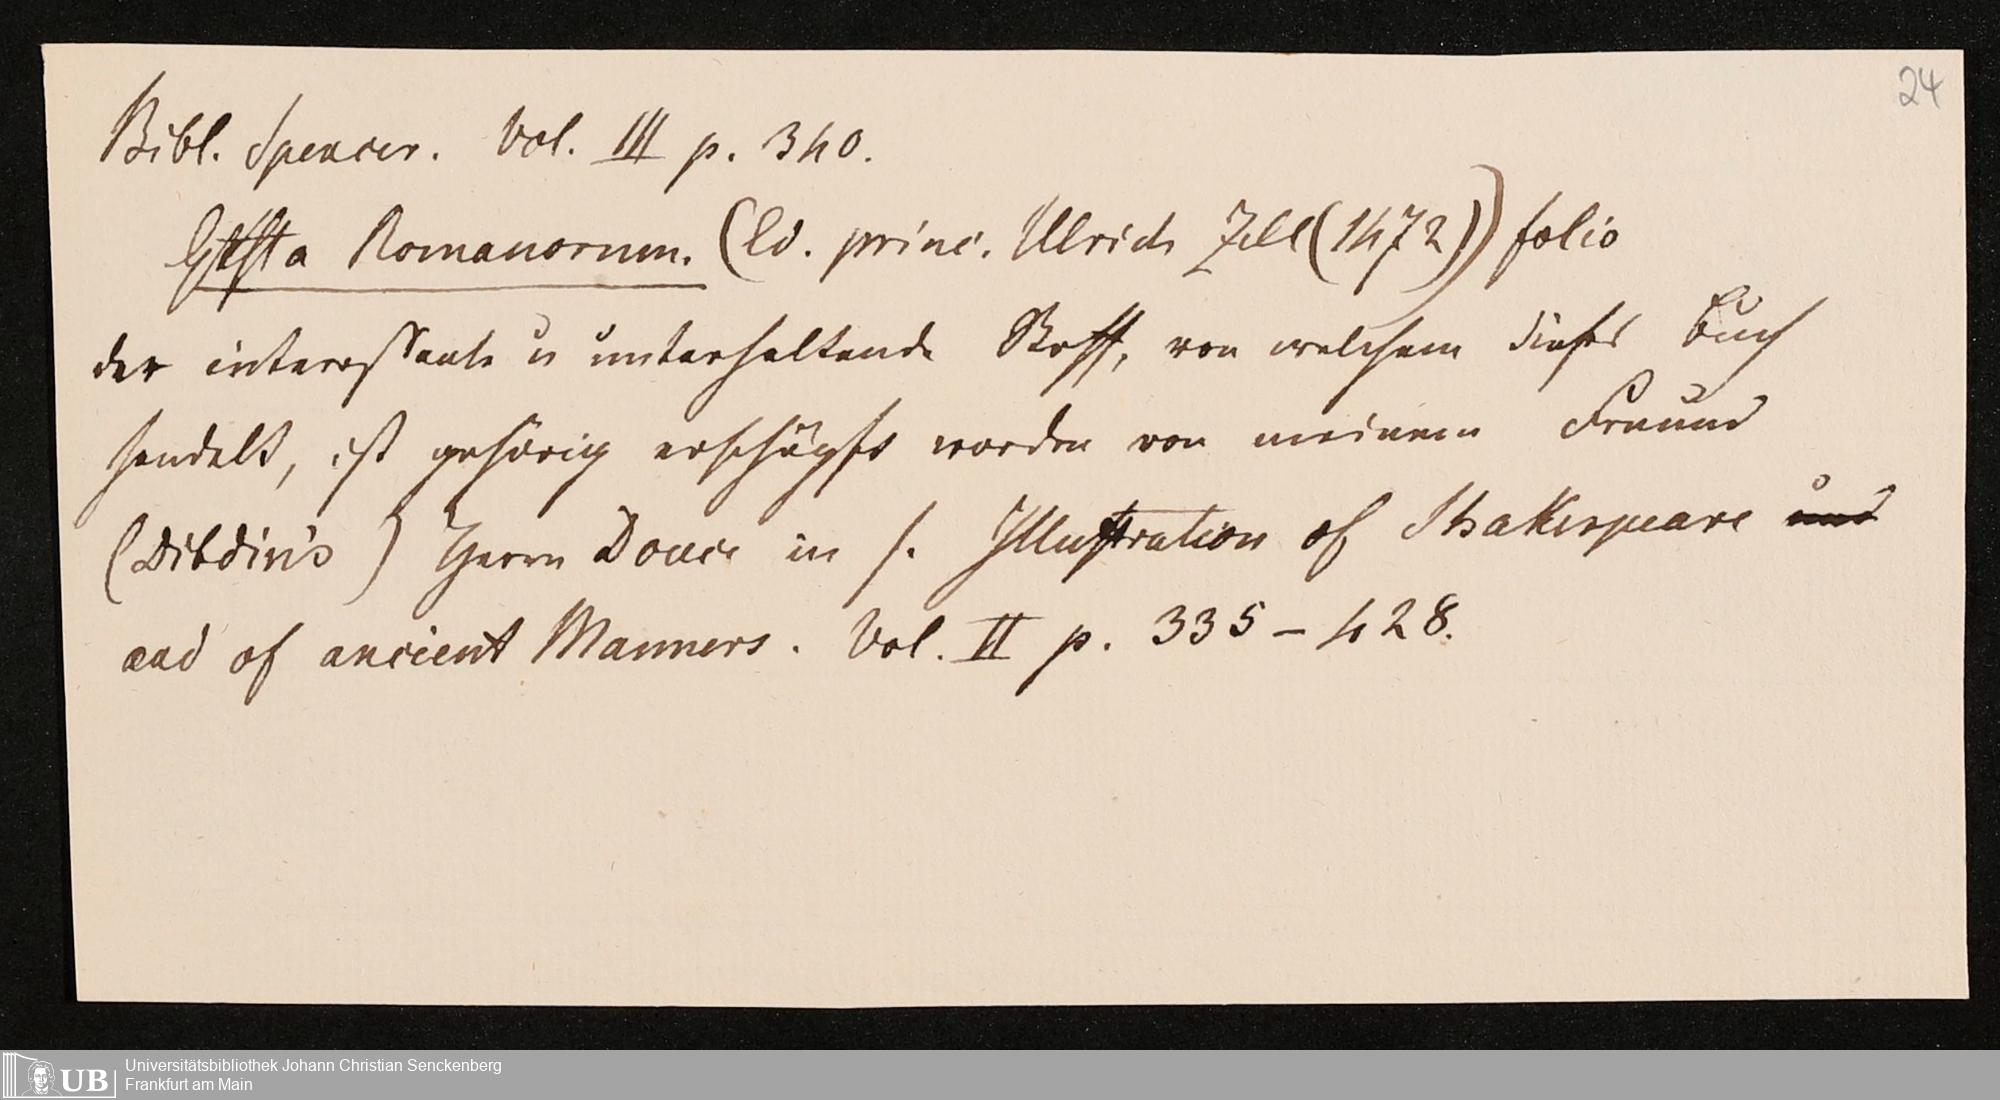 24
Bibl. Spencer. Vol. III p. 340.
Gesta Romanorum. (Ed. princ. Ulrich Zell (1472)) folio
der interessante u unterhaltende Stoff, von welchem dieses Buch
handelt, ist gehörig erschöpft worden von meinem Freund
(Dibdin's) Herrn Douce in s. Illustration of Shakespeare und
and of ancient Manners. Vol. II p. 335-428.
UB Universitätsbibliothek Johann Christian Senckenberg
Frankfurt am Main